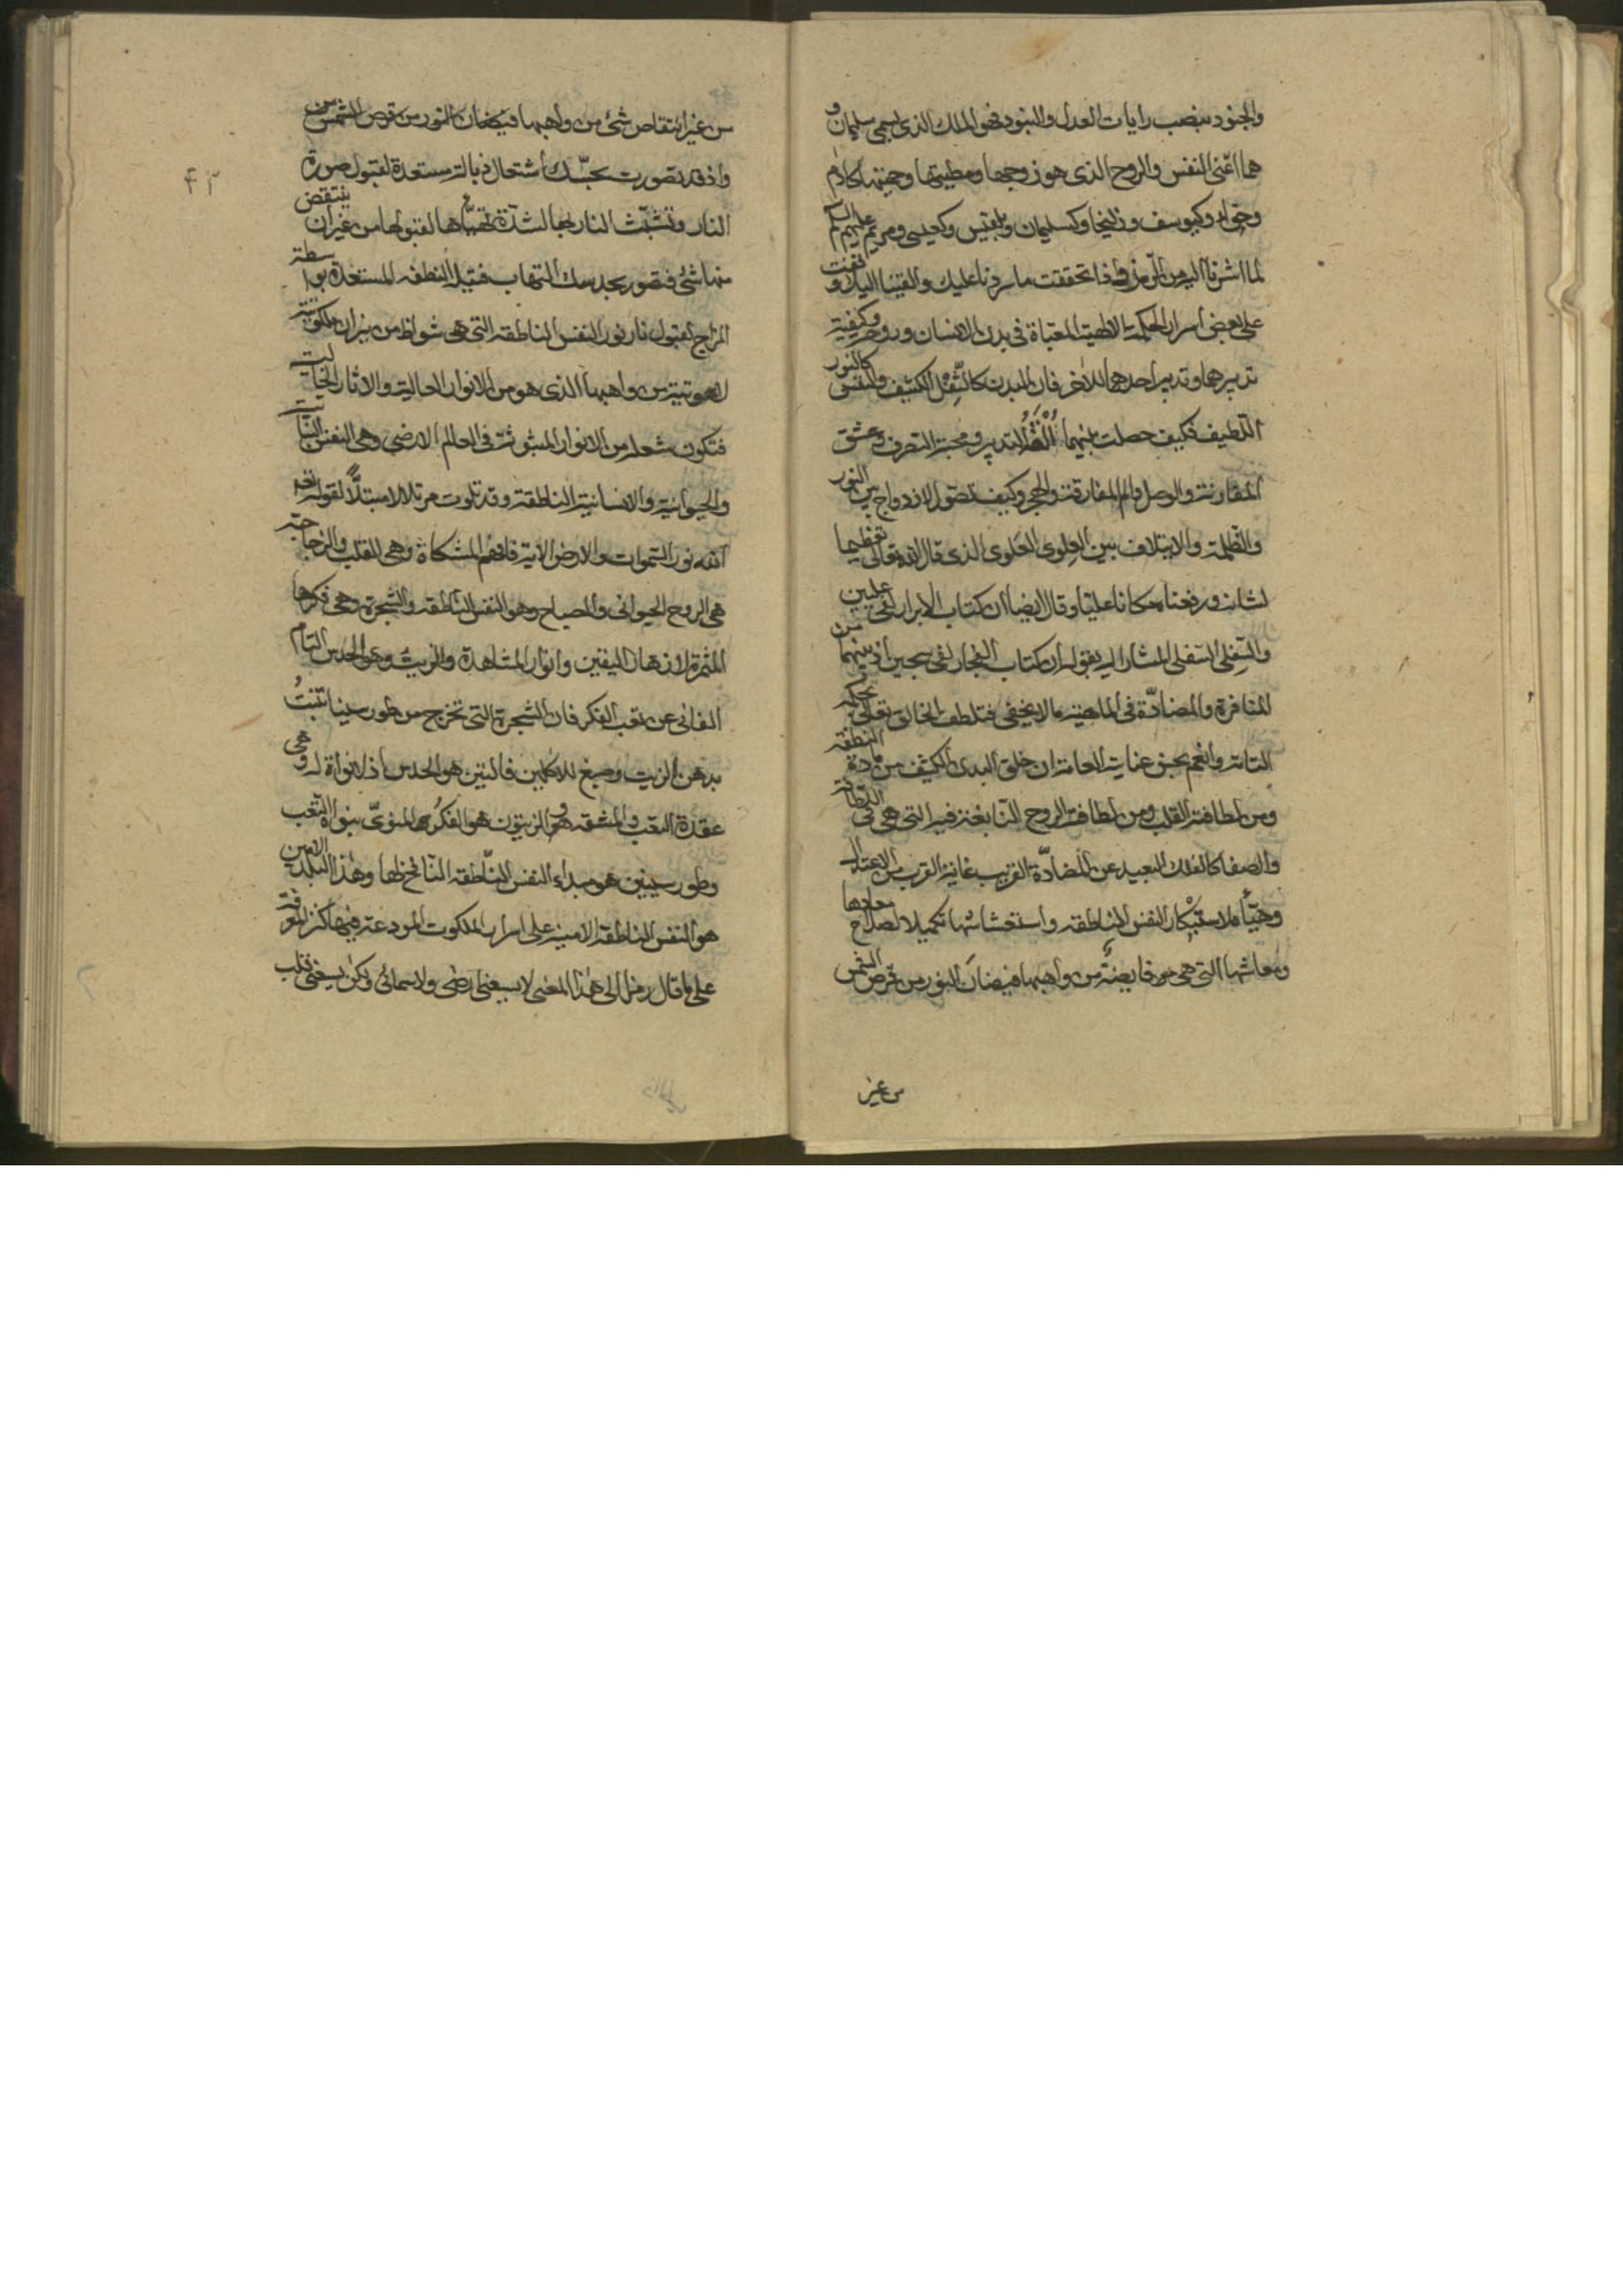 والجنود بنصب رايات العدل والبنود فهو الملك الذى يسمى سليمان و
هما اعنى النفس والروح الذى هو زوجها ومطيتها وجنتها كادم
وحواء وكيوسف وزليخا وكسليمان وبلقيس وكعيسى ومريم عليهم السلم
لما اشرنا اليه من الرمز فاذا تحققت ما سردنا عليك والقينا اليك و اتفنت
على بعض اسرار الحكمة الالهية المعباة فى بدن الانسان وروحه وكيفية
تدبيرهما وتدبير احدهما للاخر فان البدن كالثفل الكثيف والنفس كالنور
اللطيف فكيف حصلت بينهما الفة التدبير ومحبة التصرف وعشق
المقارنة والوصل والم المفارقة والهجر وكيف تصور الازدواج بين النور
والظلمة والايتلاف بين العلوى العلوى الذى قال الله تعالى تعظيما
لشانه ورفعناه مكانا عليا وقال ايضا ان كتاب الابرار لفى عليين
والسفلى السفلى المشار اليه بقوله ان كتاب الفجار لفى سجين اذ بينهما من
المنافرة والمضادة فى الماهية ما لا يخفى فتلطف الخالق تعالى بحكمه
التامة وانعم بحسن عنايته العامة ان خلق البدن الكثيف من مادة النطفة
ومن لطافته القلب ومن لطافته الروح النابغة فيه التى هى فى اللطافة
والصفا كالفلك البعيد عن المضادة القريب غاية القرب من الاعتدال
وهيأه لاستيكار النفس الناطقة واستعشاشها تكميلا لصلاح معادها
ومعاشها التى هى موفايضة من واهبها فيضان النور من قرص الشمس
من غير
من غير انتقاص شئ من واهبها فيضان النور من قرص الشمس من
واذ قد تصورت بحسّك اشتعال ذبالة مستعدة لقبول صورة
النار وتشبّث النار بها لشدة تهيّأها لقبولها من غير ان ينتقض
منها شئ فتصور بحدسك التهاب فتيلة النطفه المستعدة بواسطة
المزاج لقبول نار نور النفس الناطقه التى هى شواظ من نيران ملكوتية
لاهوتية من واهبها الذى هو من الانوار العالية والاثار الخالية
فتكون شعلة من الانوار المبثوثة فى العالم الارضى وهى النفس النباتية
والحيوانية والانسانية الناطقة وقد تلوت مرتلا لا مبتلّا لقوله تع
الله نور السموات والارض الاية فافهم المشكاة وهى القلب والزجاجة
هى الروح الحيوانى والمصباح وهو النفس الناطقه والشجرة وهى فكرها
المثمرة لاذهان اليقين وانوار المشاهدة والزيت وهو الحدس التام
الغانى عن تعب الفكر فان الشجرة التى تخرج من طور سينا تنبت
بدهن الزيت وصبغ للاكلين فالتين هو الحدس اذ لا نواة له وهى
عقدة التعب والمشقه والزيتون هو الفكر المنوىّ بنواة التعب
وطور سينين هو مبداء النفس الناطقه النافخ لها وهذا البلد الامين
هو النفس الناطقة الامينة على اسرار الملكوت المودعة فيها كنز المعرفة
على ما قال رمزا الى هذا المعنى لا يسعنى ارضى ولا سمائى ولكن يسعنى قلب
۴۳